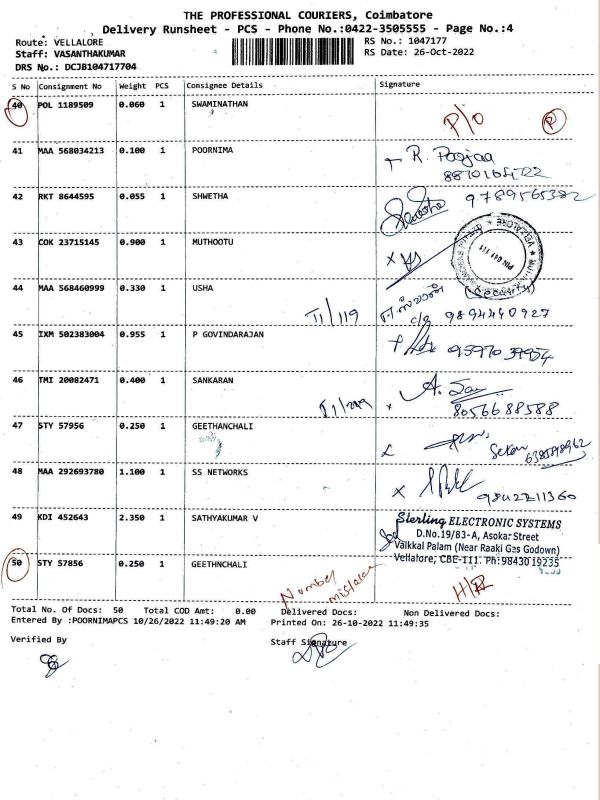 THE PROFESSIONAL COURIERS, Coimbatore
Delivery Runsheet - PCS - Phone No.:0422-3505555 - Page No.:4
Route: VELLALORE RS No.: 1047177
Staff: VASANTHAKUMAR RS Date: 26-Oct-2022
DRS No.: DCJB104717704
S No Consignment No Weight PCS Consignee Details Signature
40 POL 1189509 0.060 1 SWAMINATHAN
P/O P
41 MAA 568034213 0.100 1 POORNIMA R. Poojaa
42 RKT 8644595 0.055 1 SHWETHA 9789565382
43 COK 23715145 0.900 1 MUTHOOTU
VELLALORE
PIN 641 111
44 MAA 568460999 0.330 1 USHA
T1/119 c/g 9894440927
45 IXM 502383004 0.955 1 P GOVINDARAJAN
46 TMI 20082471 0.400 1 SANKARAN
8056688588
47 STY 57956 0.250 1 GEETHANCHALI
48 MAA 292693780 1.100 1 SS NETWORKS
9842211360
49 KDI 452643 2.350 1 SATHYAKUMAR V
Sterling ELECTRONIC SYSTEMS
D.No.19/83-A, Asokar Street
Vaikkal Palam (Near Raaki Gas Godown)
Vellalore, CBE-111. Ph:9843019235
50 STY 57856 0.250 1 GEETHNCHALI
Number
mistake
Total No. Of Docs: 50 Total COD Amt: 0.00 Delivered Docs: Non Delivered Docs:
Entered By :POORNIMAPCS 10/26/2022 11:49:20 AM Printed On: 26-10-2022 11:49:35
Verified By Staff Signature